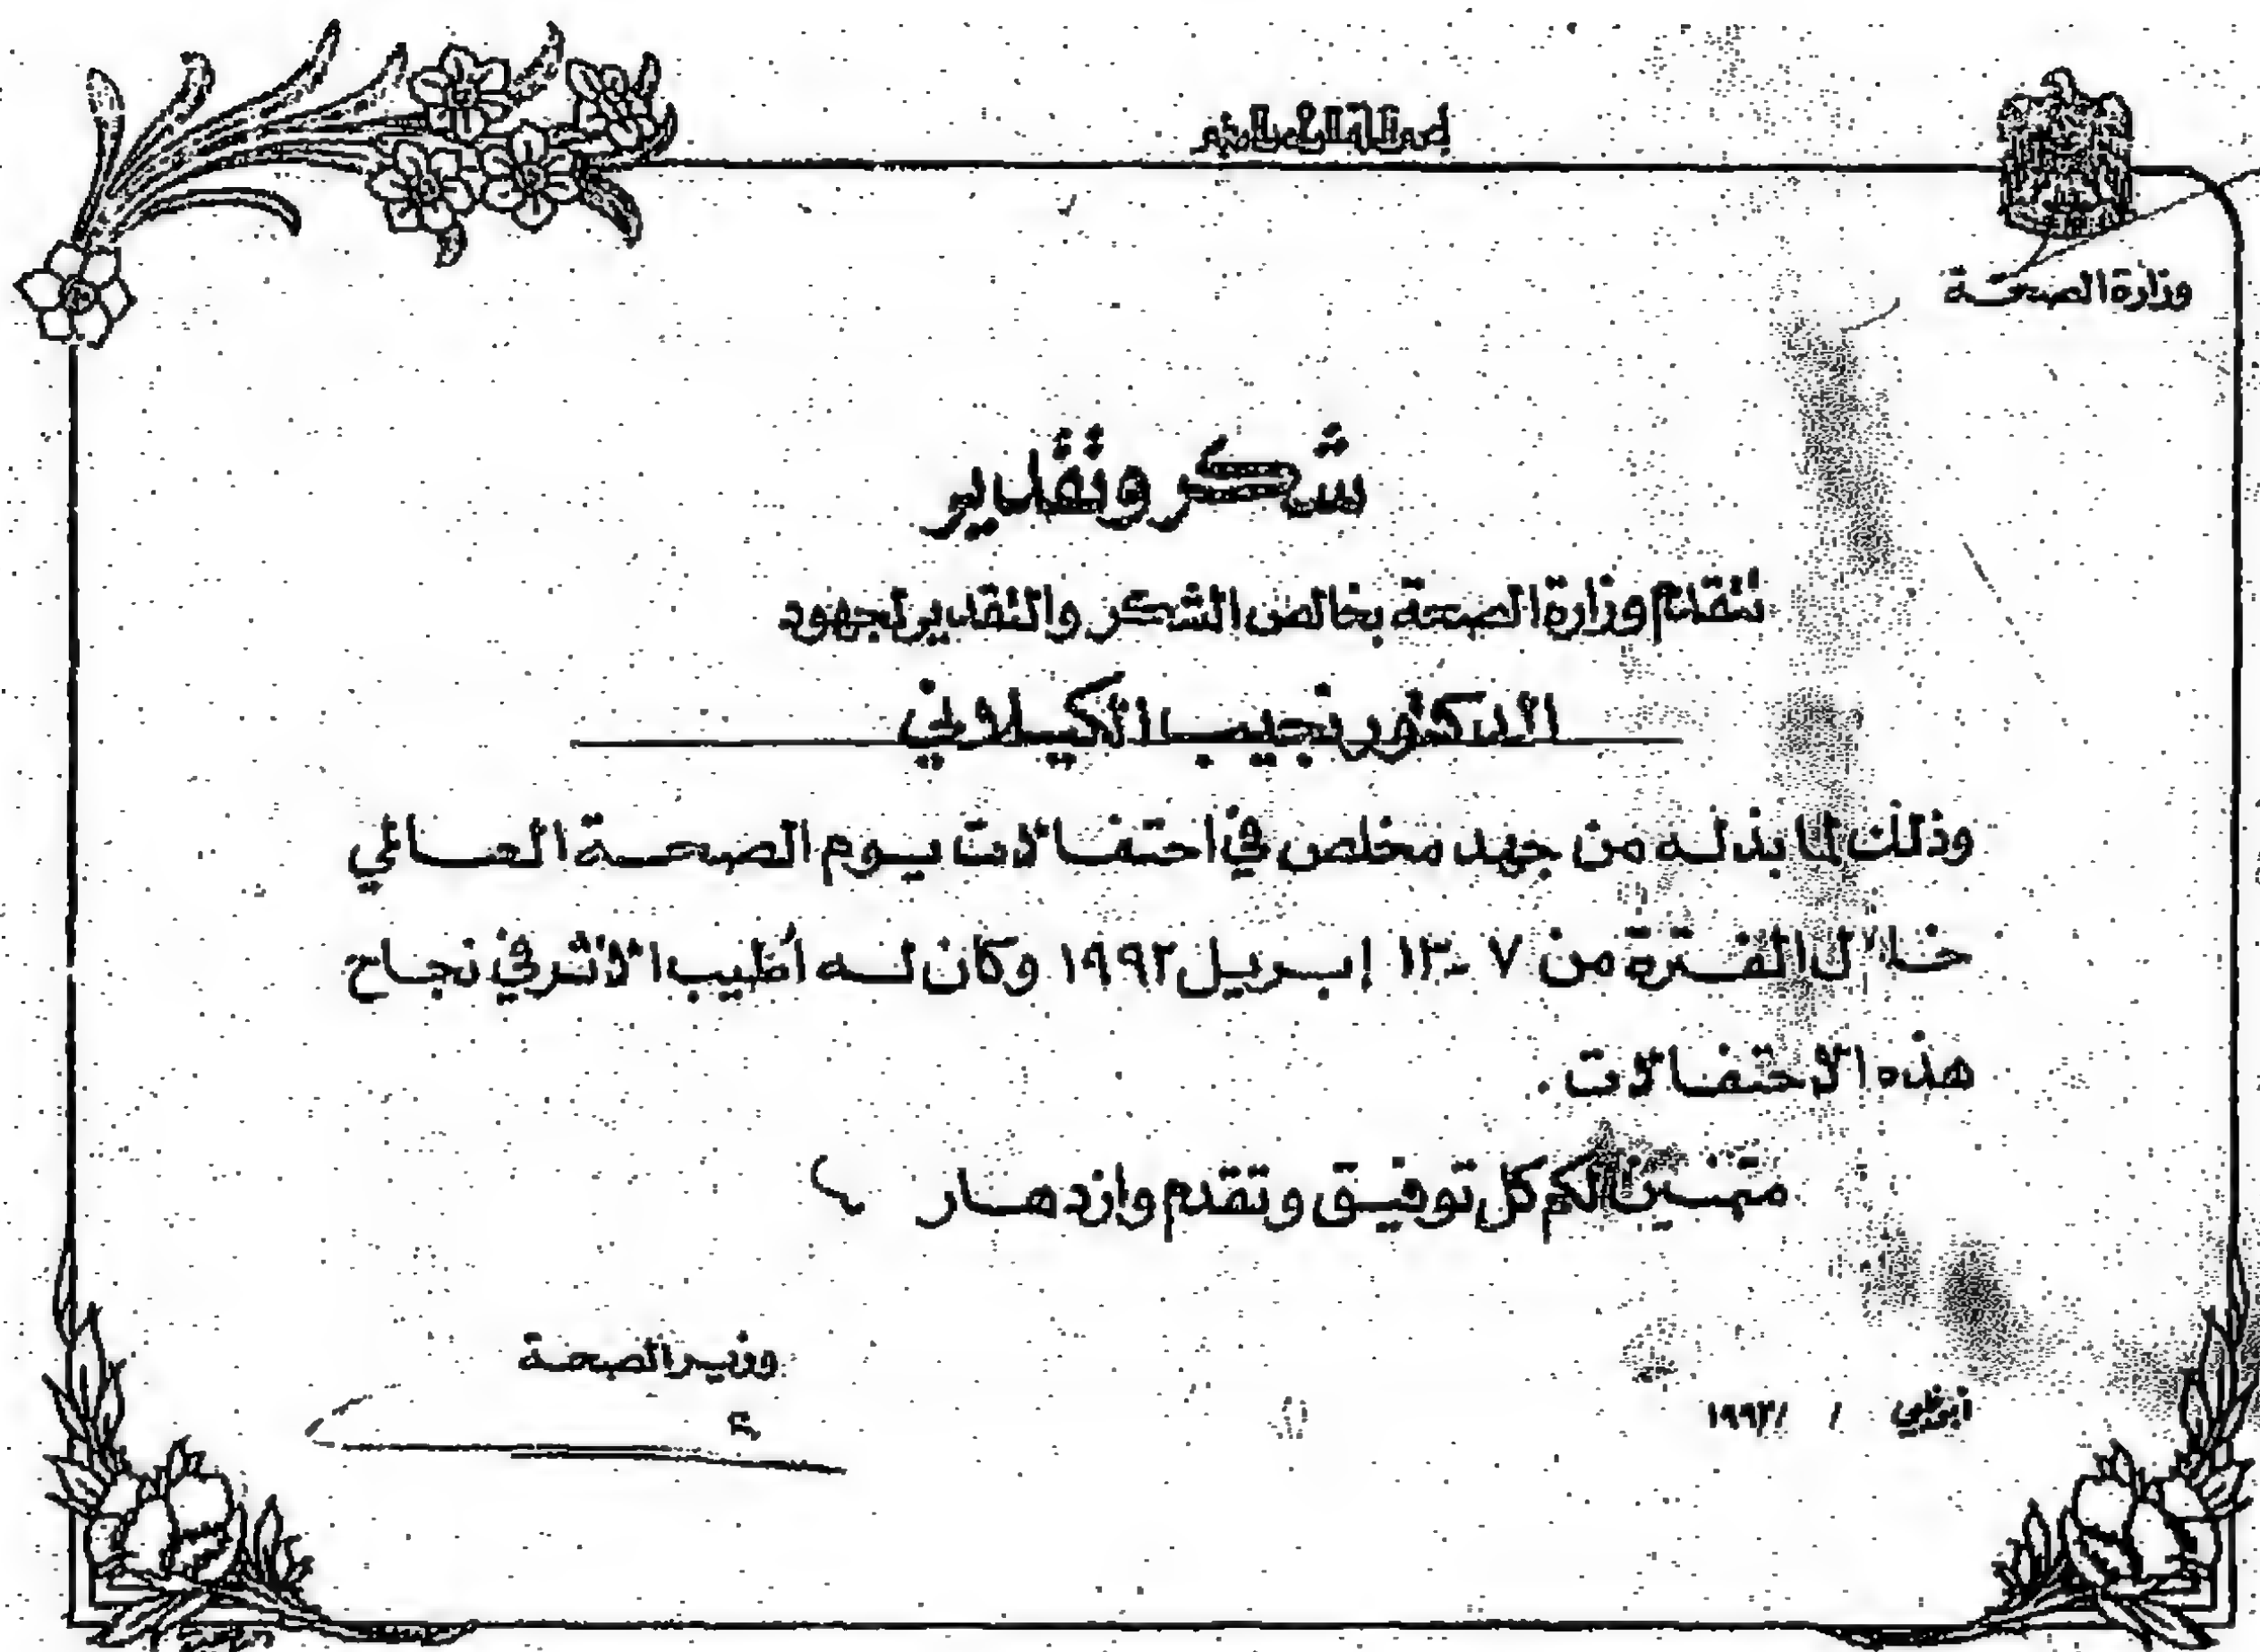 بسم الله الرحمن الرحيم
وزارة الصحة
شكر وتقدير
تتقدم وزارة الصحة بخالص الشكر والتقدير لجهود
الدكتور نجيب الكيلاني
وذلك لما بذله من جهد مخلص في احتفالات يوم الصحة العالمي
خلال الفترة من ٧ - ١٣ إبريل ١٩٩٢ وكان له أطيب الأثر في نجاح
هذه الاحتفالات .
متمنين لكم كل توفيق وتقدم وازدهار
وزير الصحة
أبوظبي / /١٩٩٢